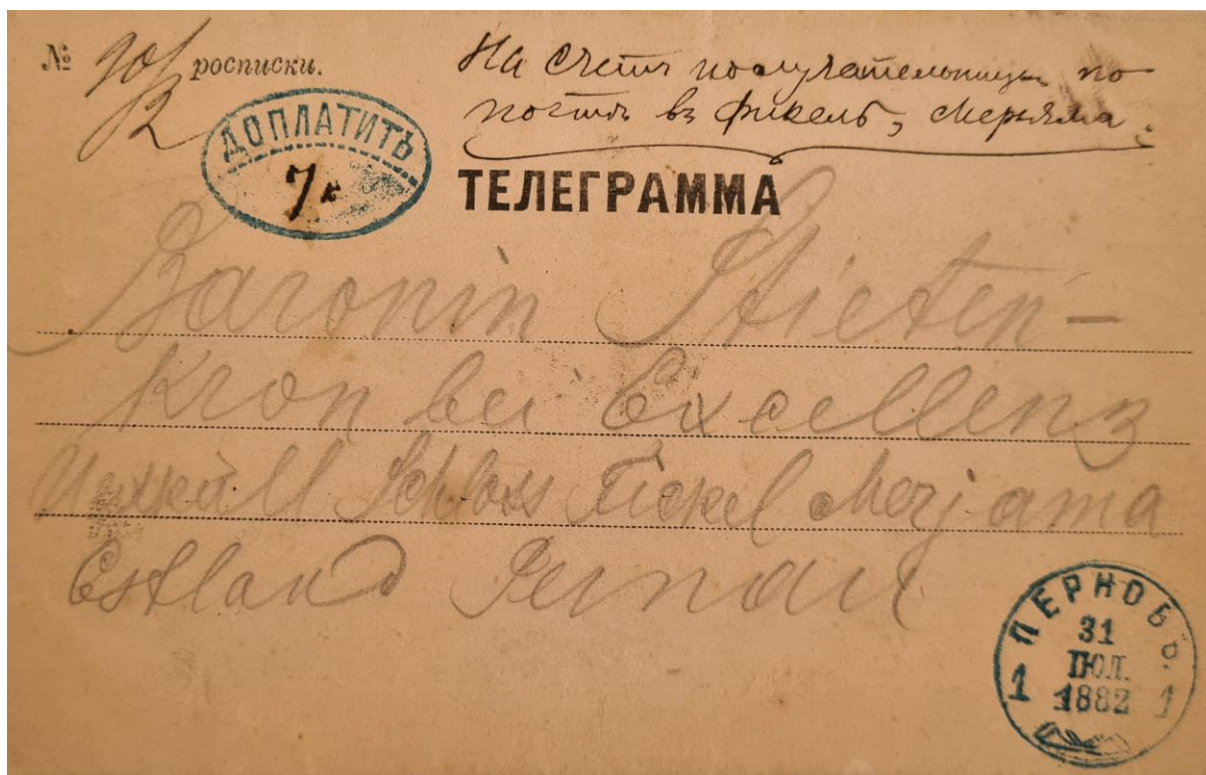 № росписки.
На счетъ получательницы по
почтѣ въ Фикель, Мерьяма.
ДОПЛАТИТЬ
7 к
ТЕЛЕГРАММА
Baronin Stieten-
kron bei Excellenz
Uexküll Schloss Fickel Merjama
Estland Pernau
ПЕРНОВЪ.
31
ІЮЛ.
1882
1 1